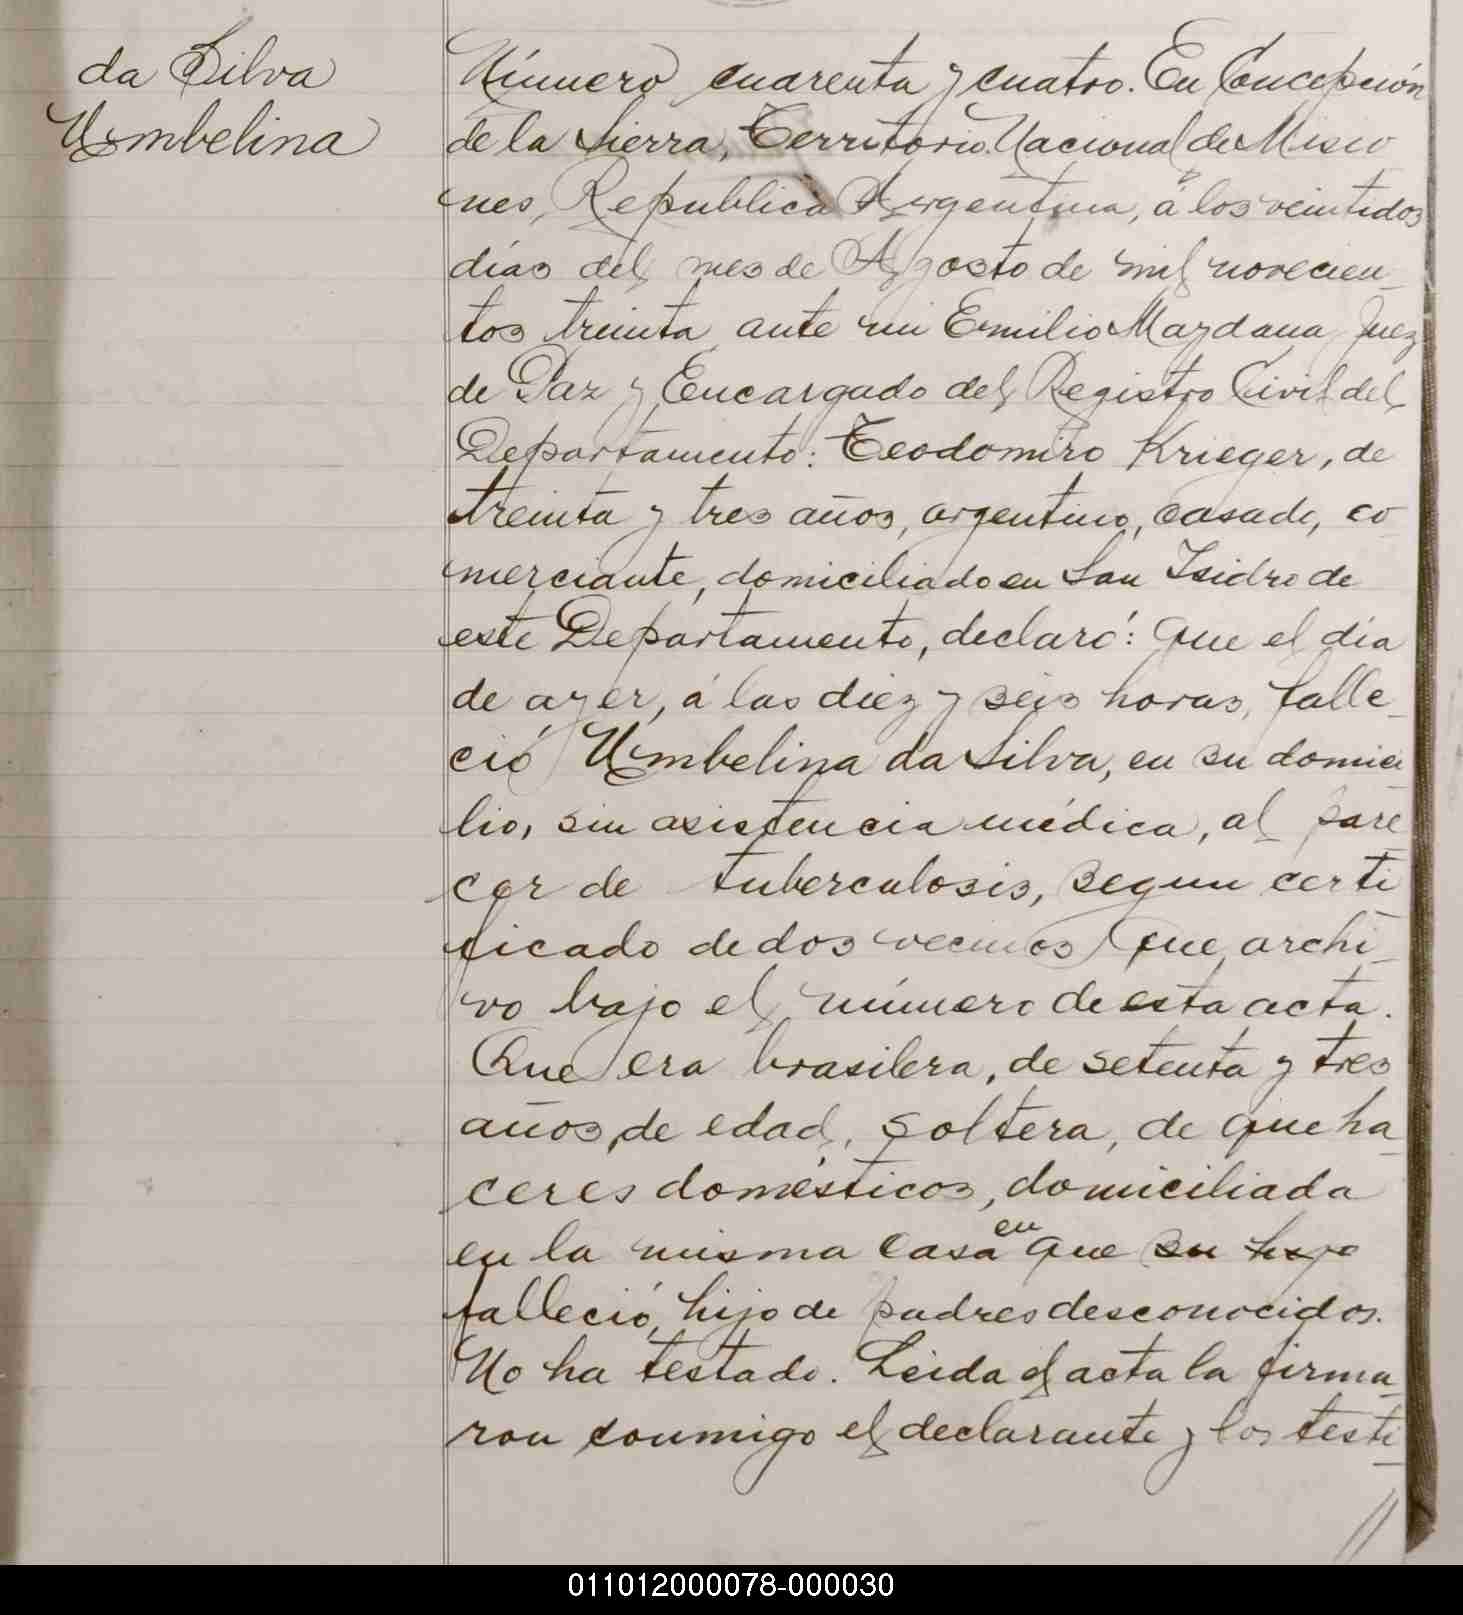 da Silva
Umbelina
Número cuarenta y cuatro. En Concepción
de la Sierra, Territorio Nacional de Misio
nes, Republica Argentina, á los veintidos
días del mes de Agosto de mil novecien_
tos treinta, ante mi Emilio Maydana, Juez
de Paz y Encargado del Registro Civil del
Departamento: Teodomiro Krieger, de
treinta y tres años, argentino, casado, co_
merciante, domiciliado en San Isidro de
este Departamento, declaró: Que el día
de ayer, á las diez y seis horas, falle_
ció Umbelina da Silva, en su domici
lio, sin asistencia médica, al pare_
cer de tuberculosis, segun certi
ficado de dos vecinos que archi_
vo bajo el número de esta acta.
Que era brasilera, de setenta y tres
años de edad, soltera, de queha_
ceres domésticos, domiciliada
en la misma casa en que su hijo
falleció, hijo de padres desconocidos.
No ha testado. Leida el acta la firma_
ron conmigo el declarante y los testi_
011012000078-000030